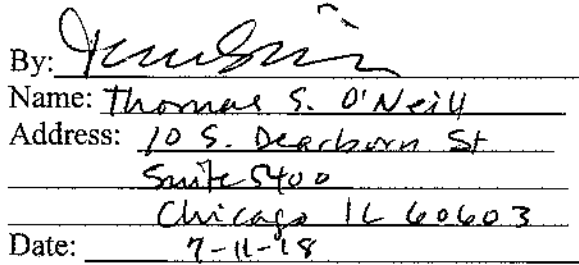 By:
Name: Thomas S. O'Neill
Address: 10 S. Dearborn St
Suite 5400
Chicago IL 60603
Date: 7-11-18